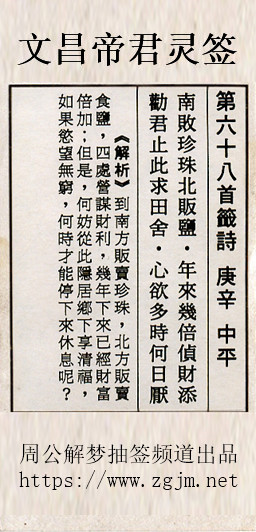 文昌帝君灵签
第六十八首籤詩 庚辛 中平
南敗珍珠北販鹽・年來幾倍償財添
勸君止此求田舍・心欲多時何日厭
《解析》到南方販賣珍珠，北方販賣
食鹽，四處營謀財利，幾年下來已經財富
倍加；但是，何妨從此隱居鄉下享清福，
如果慾望無窮，何時才能停下來休息呢？
周公解梦抽签频道出品
https://www.zgjm.net